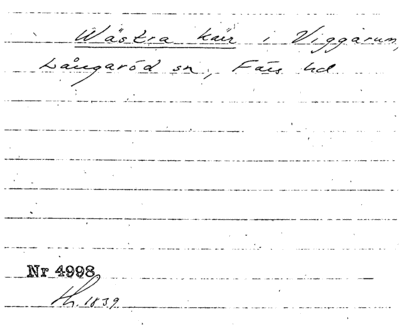 Wästra kärr i Viggarum,
Långaröd sn, Färs hd
Nr 4998
Th. 1839